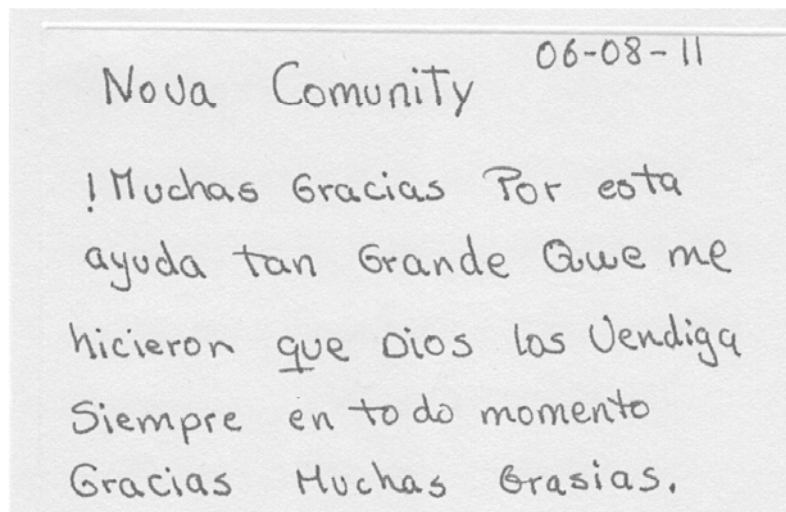 06-08-11
Nova Comunity
!Muchas Gracias Por esta
ayuda tan Grande Que me
hicieron que Dios los Vendiga
Siempre en todo momento
Gracias Muchas Grasias.